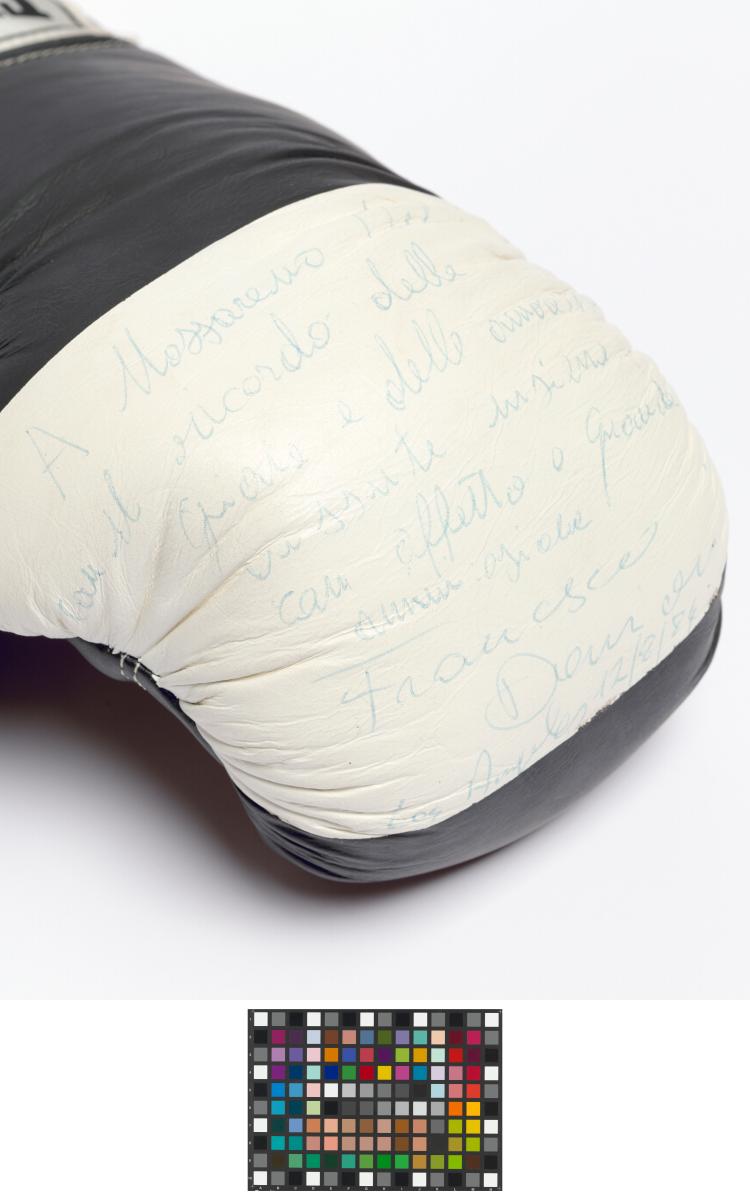 A Nazzareno
con il ricordo delle
gioie e delle
vissute insieme
con affetto e grande
ammirazione
Francesco
Damiani
Los Angeles 12/8/84